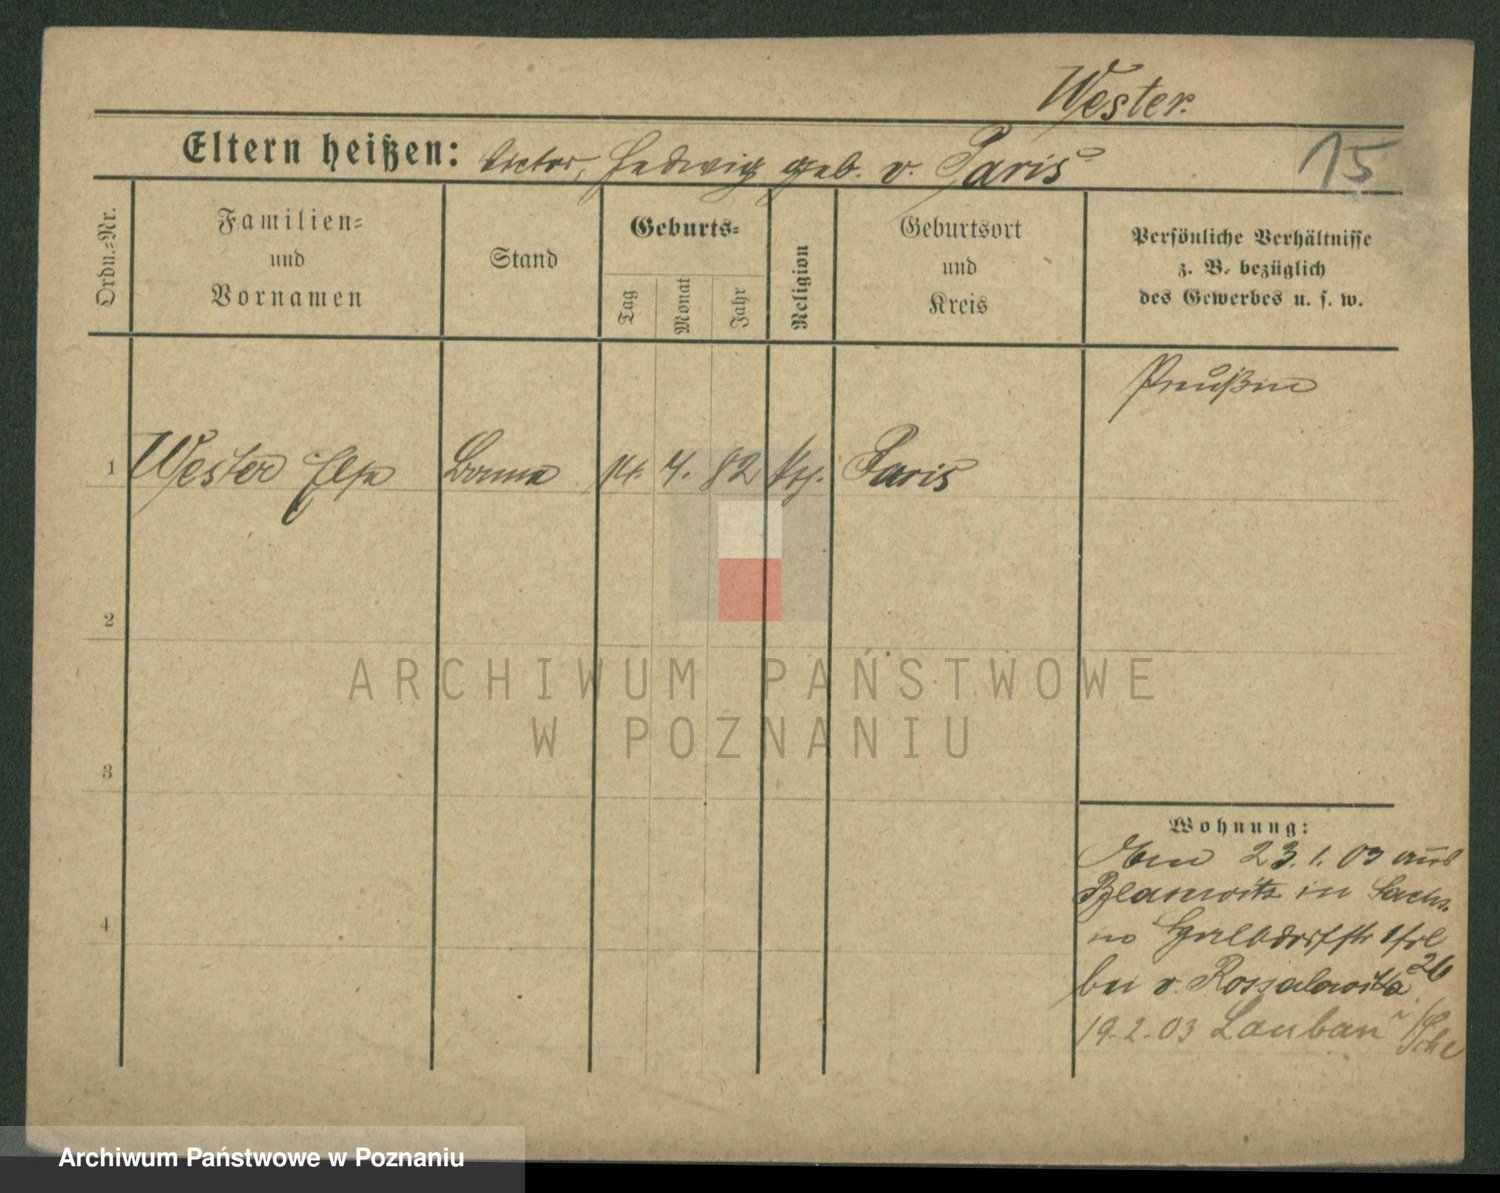 Wester.
Eltern heißen: Victor, Hedwig geb. v. Paris
15
Ordn.-Nr.
Familien-
und
Vornamen
Stand
Geburts-
Tag
Monat
Jahr
Religion
Geburtsort
und
Kreis
Persönliche Verhältnisse
z. B. bezüglich
des Gewerbes u. s. w.
Preußin
1 Wester Else Bonne 14. 4. 82 Paris
2
3
4
Wohnung:
23. 1. 03 aus
Blasewitz in Sachs.
no
bei v.
26
19. 2. 03 Lauban
ARCHIWUM PAŃSTWOWE
W POZNANIU
Archiwum Państwowe w Poznaniu